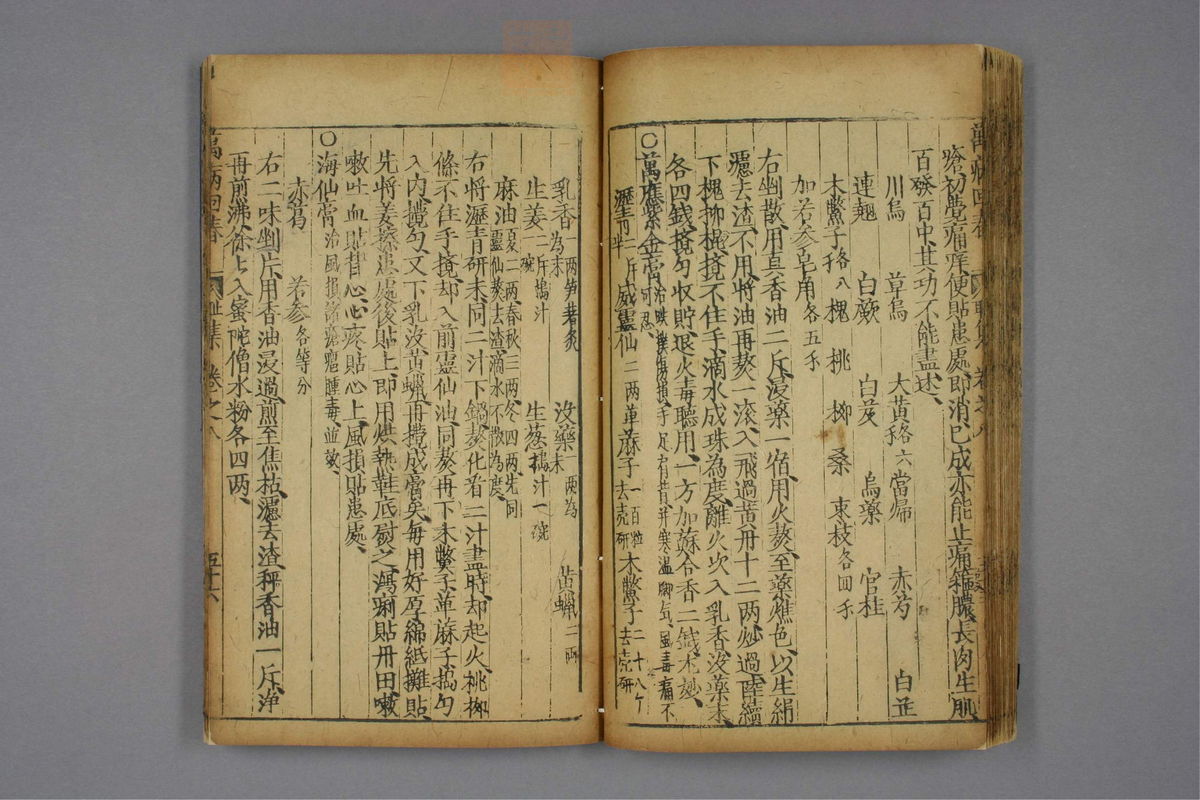 瘡初覺痛痒便貼患處即消已成亦能止痛箍膿長肉生肌
百發百中其功不能盡述
川烏 草烏 大黃各六 當歸 赤芍 白芷
連翹 白蘞 白芨 烏藥 官桂
木鱉子各八 槐 桃 柳 桑 東枝各四
加苦參皂角各五
右剉散用真香油二斤浸藥一宿用火熬至藥燋色以生絹
濾去渣不用將油再熬一滾入飛過黃丹十二兩炒過陸續
下槐柳棍攪不住手滴水成珠為度離火次入乳香沒藥末
各四錢攪勻收貯退火毒聽用一方加蘇合香二錢尤妙
○萬應紫金膏治跌撲傷損手足肩背并寒濕脚氣風毒痛不可忍
瀝青二斤半 威靈仙二兩 蓖麻子一百粒去壳研 木鱉子二十八个去壳研
乳香一兩為末笋箬炙 沒藥一兩為末 黃蠟二兩
生姜二斤搗汁一碗 生葱搗汁一碗
麻油夏二兩春秋三兩冬四兩先同靈仙熬去渣滴水不散為度
右將瀝青研末同二汁下鍋熬化看二汁盡時却起火桃柳
條不住手攪却入前靈仙油同熬再下木鱉子蓖麻子搗勻
入內攪勻又下乳沒黃蠟再攪成膏矣每用好厚綿紙攤貼
先將姜擦患處後貼上即用烘熱鞋底熨之瀉痢貼丹田嗽
嗽吐血貼背心心疼貼心上風損貼患處
○海仙膏治風損諸瘡癧腫毒並效
赤葛 苦參各等分
右二味剉片用香油浸過煎至焦枯濾去渣秤香油一斤淨
再煎沸徐徐入蜜陀僧水粉各四兩
萬病回春 卷之八